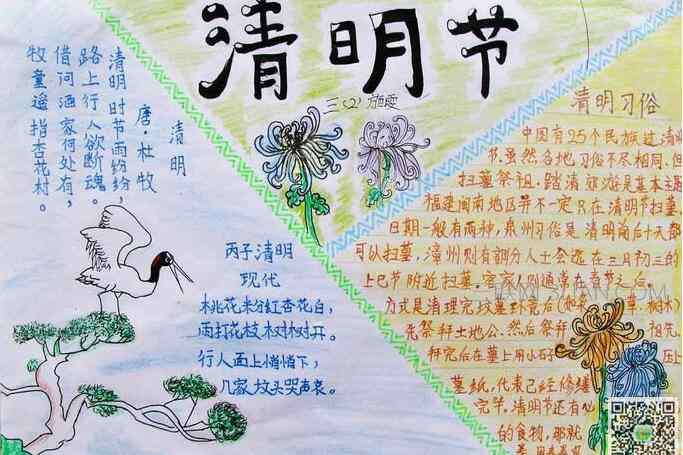 清明节
三(2)
清明
唐·杜牧
清明时节雨纷纷,
路上行人欲断魂。
借问酒家何处有,
牧童遥指杏花村。
丙子清明
现代
桃花粉红杏花白,
雨打花枝树树开。
行人面上悄悄下,
几家坟头哭声哀。
清明习俗
中国有25个民族过清明
节,虽然各地习俗不尽相同,但
扫墓祭祖、踏清郊游是基本主题
福建闽南地区并不一定只在清明节扫墓,
日期一般有两种,泉州习俗是清明前后十天都
可以扫墓,漳州则有部分人士会选在三月初三的
上巳节附近扫墓。客家人则通常在春节之后。
方式是清理完坟墓环境后( 草、树木)
先祭拜土地公,然后祭拜 祖先,
拜完后在墓上用小石 压上
墓纸,代表已经修缮
完毕,清明节还有
的食物,那就